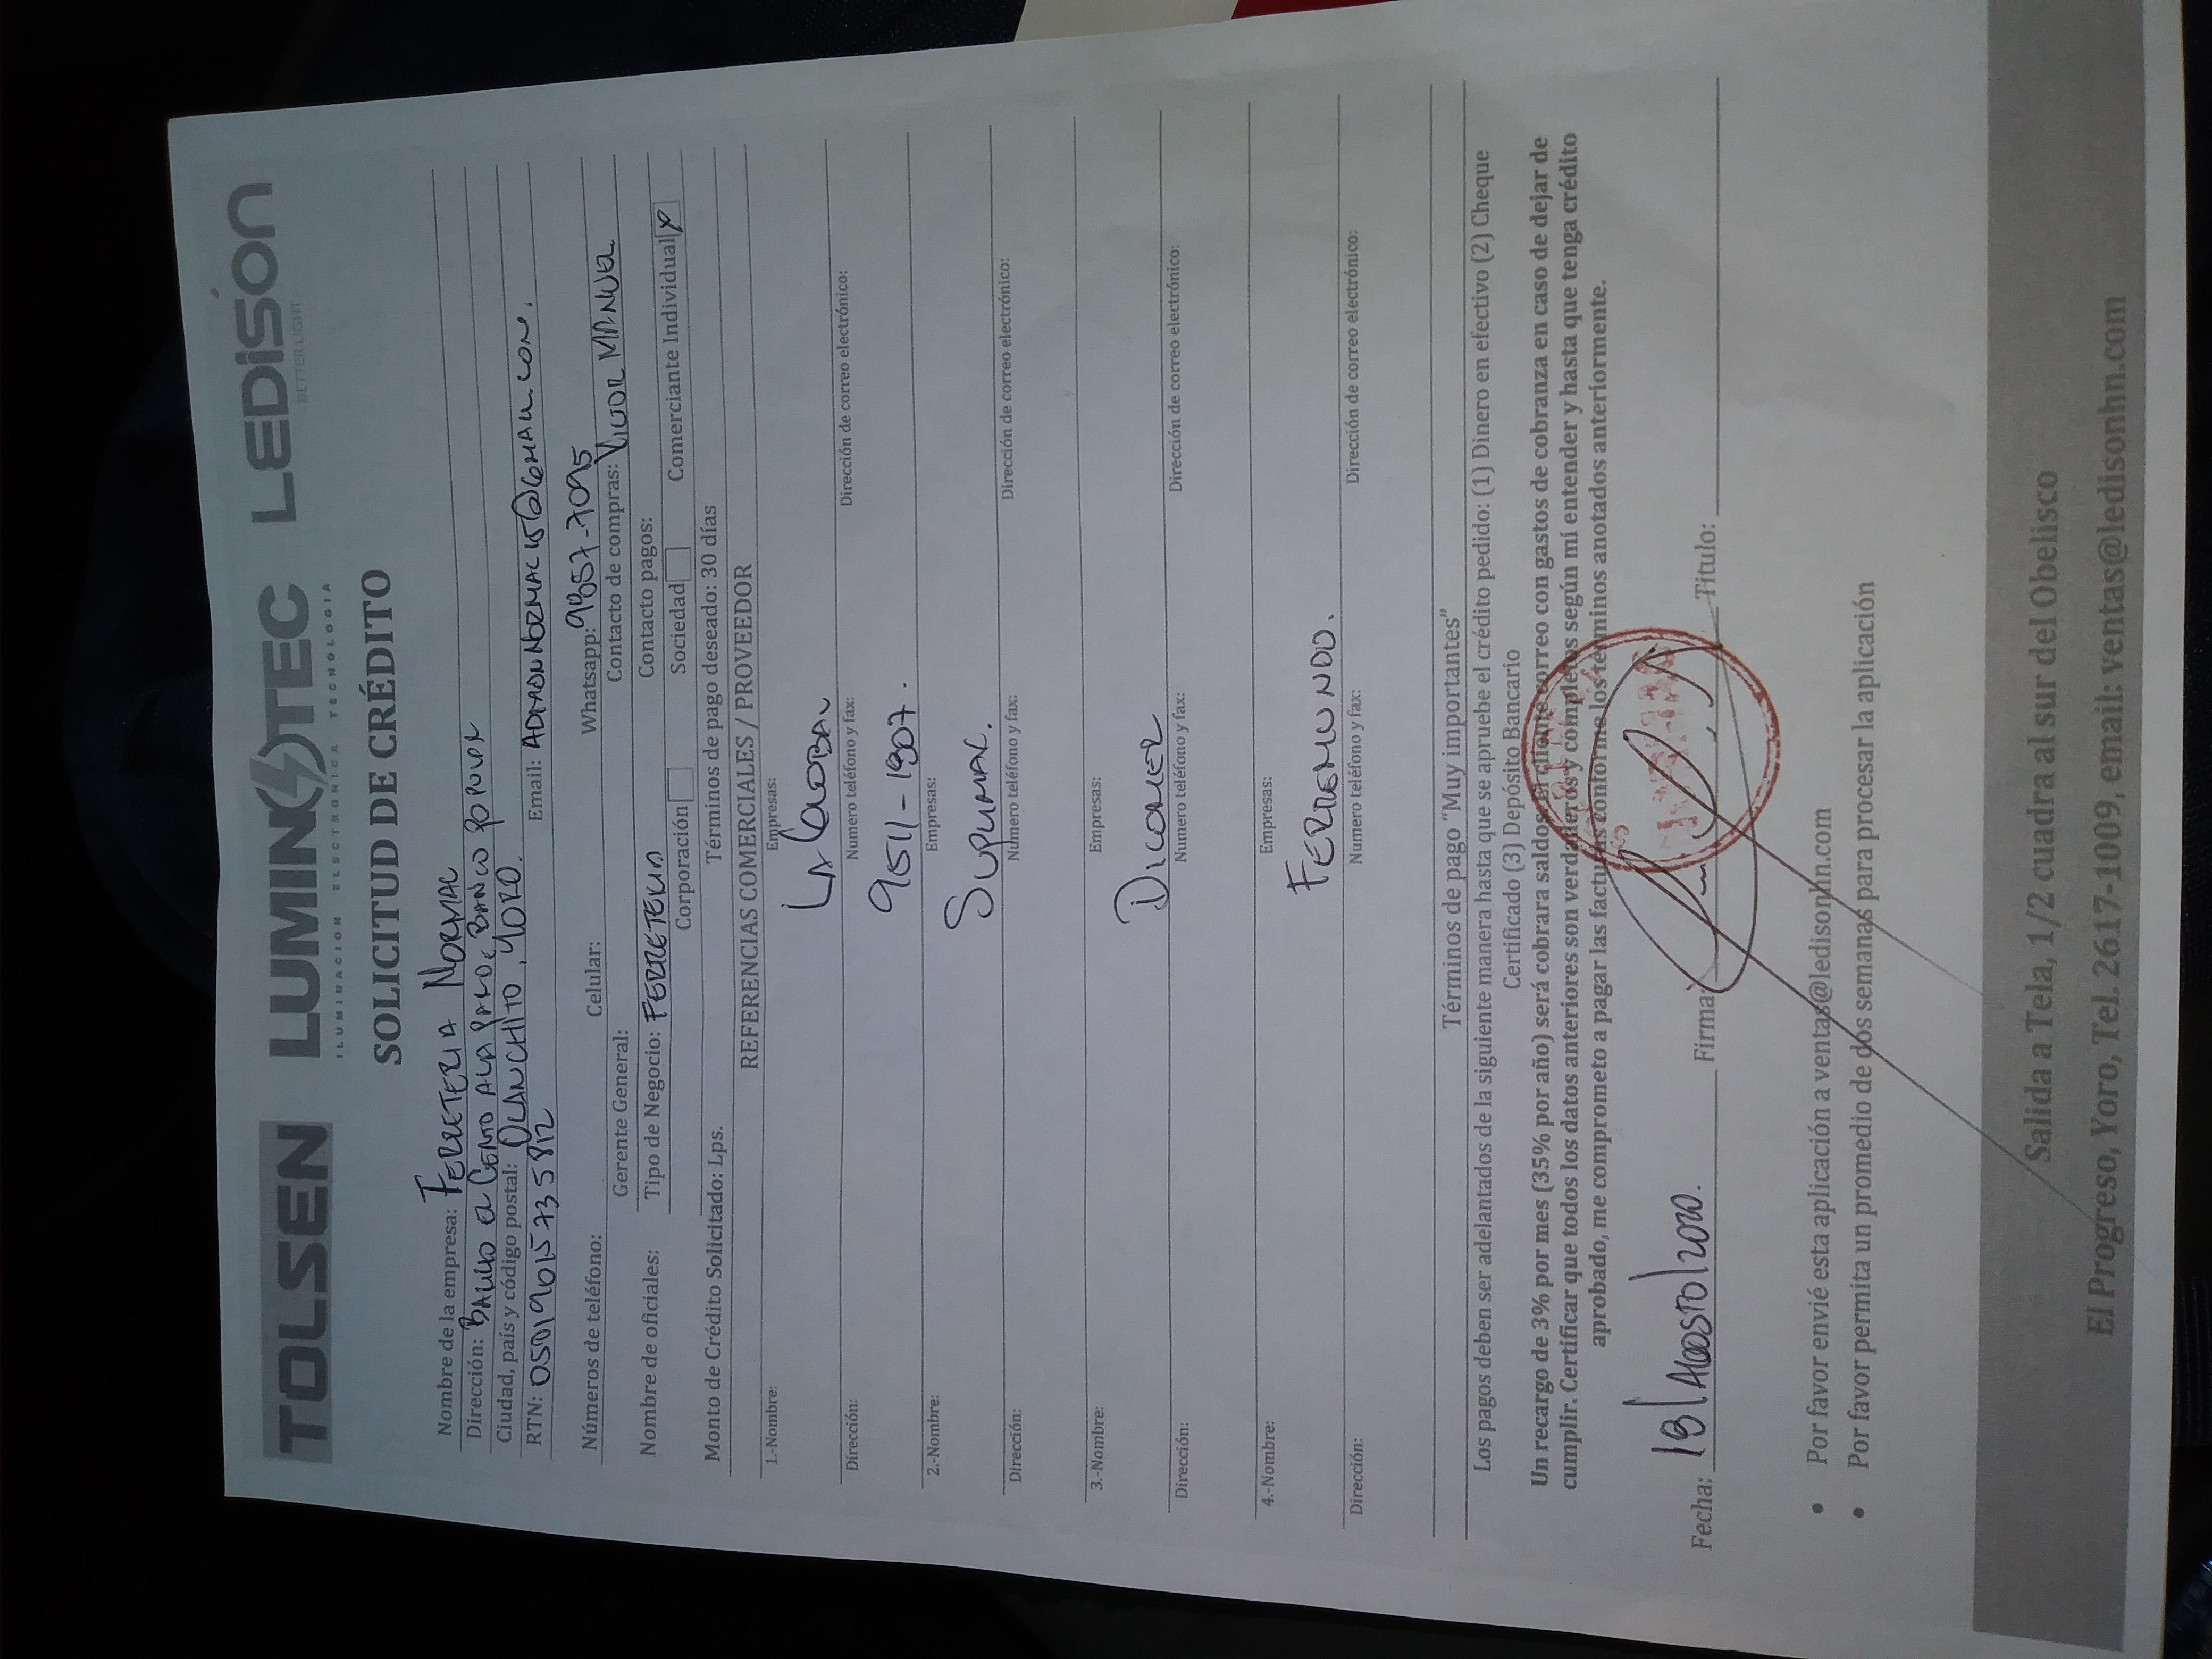 TOLSEN LUMINOTEC LEDISON
ILUMINACION ELECTRONICA TECNOLOGIA BETTER LIGHT
SOLICITUD DE CRÉDITO
Nombre de la empresa: FERRETERIA NORMAC
Dirección: EL BANCO POPULAR
Ciudad, país y código postal: OLANCHITO, YORO.
RTN: 05019015735812 Email:
Números de teléfono: Celular: Whatsapp: 9857-7095
Gerente General: Contacto de compras: VICTOR MANUEL
Nombre de oficiales: Tipo de Negocio: FERRETERIA Contacto pagos:
Corporación Sociedad Comerciante Individual X
Monto de Crédito Solicitado: Lps. Términos de pago deseado: 30 días
REFERENCIAS COMERCIALES / PROVEEDOR
1.-Nombre: Empresas:
LA GLOBAL
Dirección: Numero teléfono y fax: Dirección de correo electrónico:
9511-1907.
2.-Nombre: Empresas:
Dirección: Numero teléfono y fax: Dirección de correo electrónico:
3.-Nombre: Empresas:
DICOMER
Dirección: Numero teléfono y fax: Dirección de correo electrónico:
4.-Nombre: Empresas:
FERREMUNDO.
Dirección: Numero teléfono y fax: Dirección de correo electrónico:
Términos de pago “Muy importantes”
Los pagos deben ser adelantados de la siguiente manera hasta que se apruebe el crédito pedido: (1) Dinero en efectivo (2) Cheque
Certificado (3) Depósito Bancario
Un recargo de 3% por mes (35% por año) será cobrara saldos. El cliente correo con gastos de cobranza en caso de dejar de
cumplir. Certificar que todos los datos anteriores son verdaderos y completos según mi entender y hasta que tenga crédito
aprobado, me comprometo a pagar las facturas conforme los términos anotados anteriormente.
Fecha: 18/AGOSTO/2020. Firma: Titulo:
• Por favor envié esta aplicación a ventas@ledisonhn.com
• Por favor permita un promedio de dos semanas para procesar la aplicación
Salida a Tela, 1/2 cuadra al sur del Obelisco
El Progreso, Yoro, Tel. 2617-1009, email: ventas@ledisonhn.com